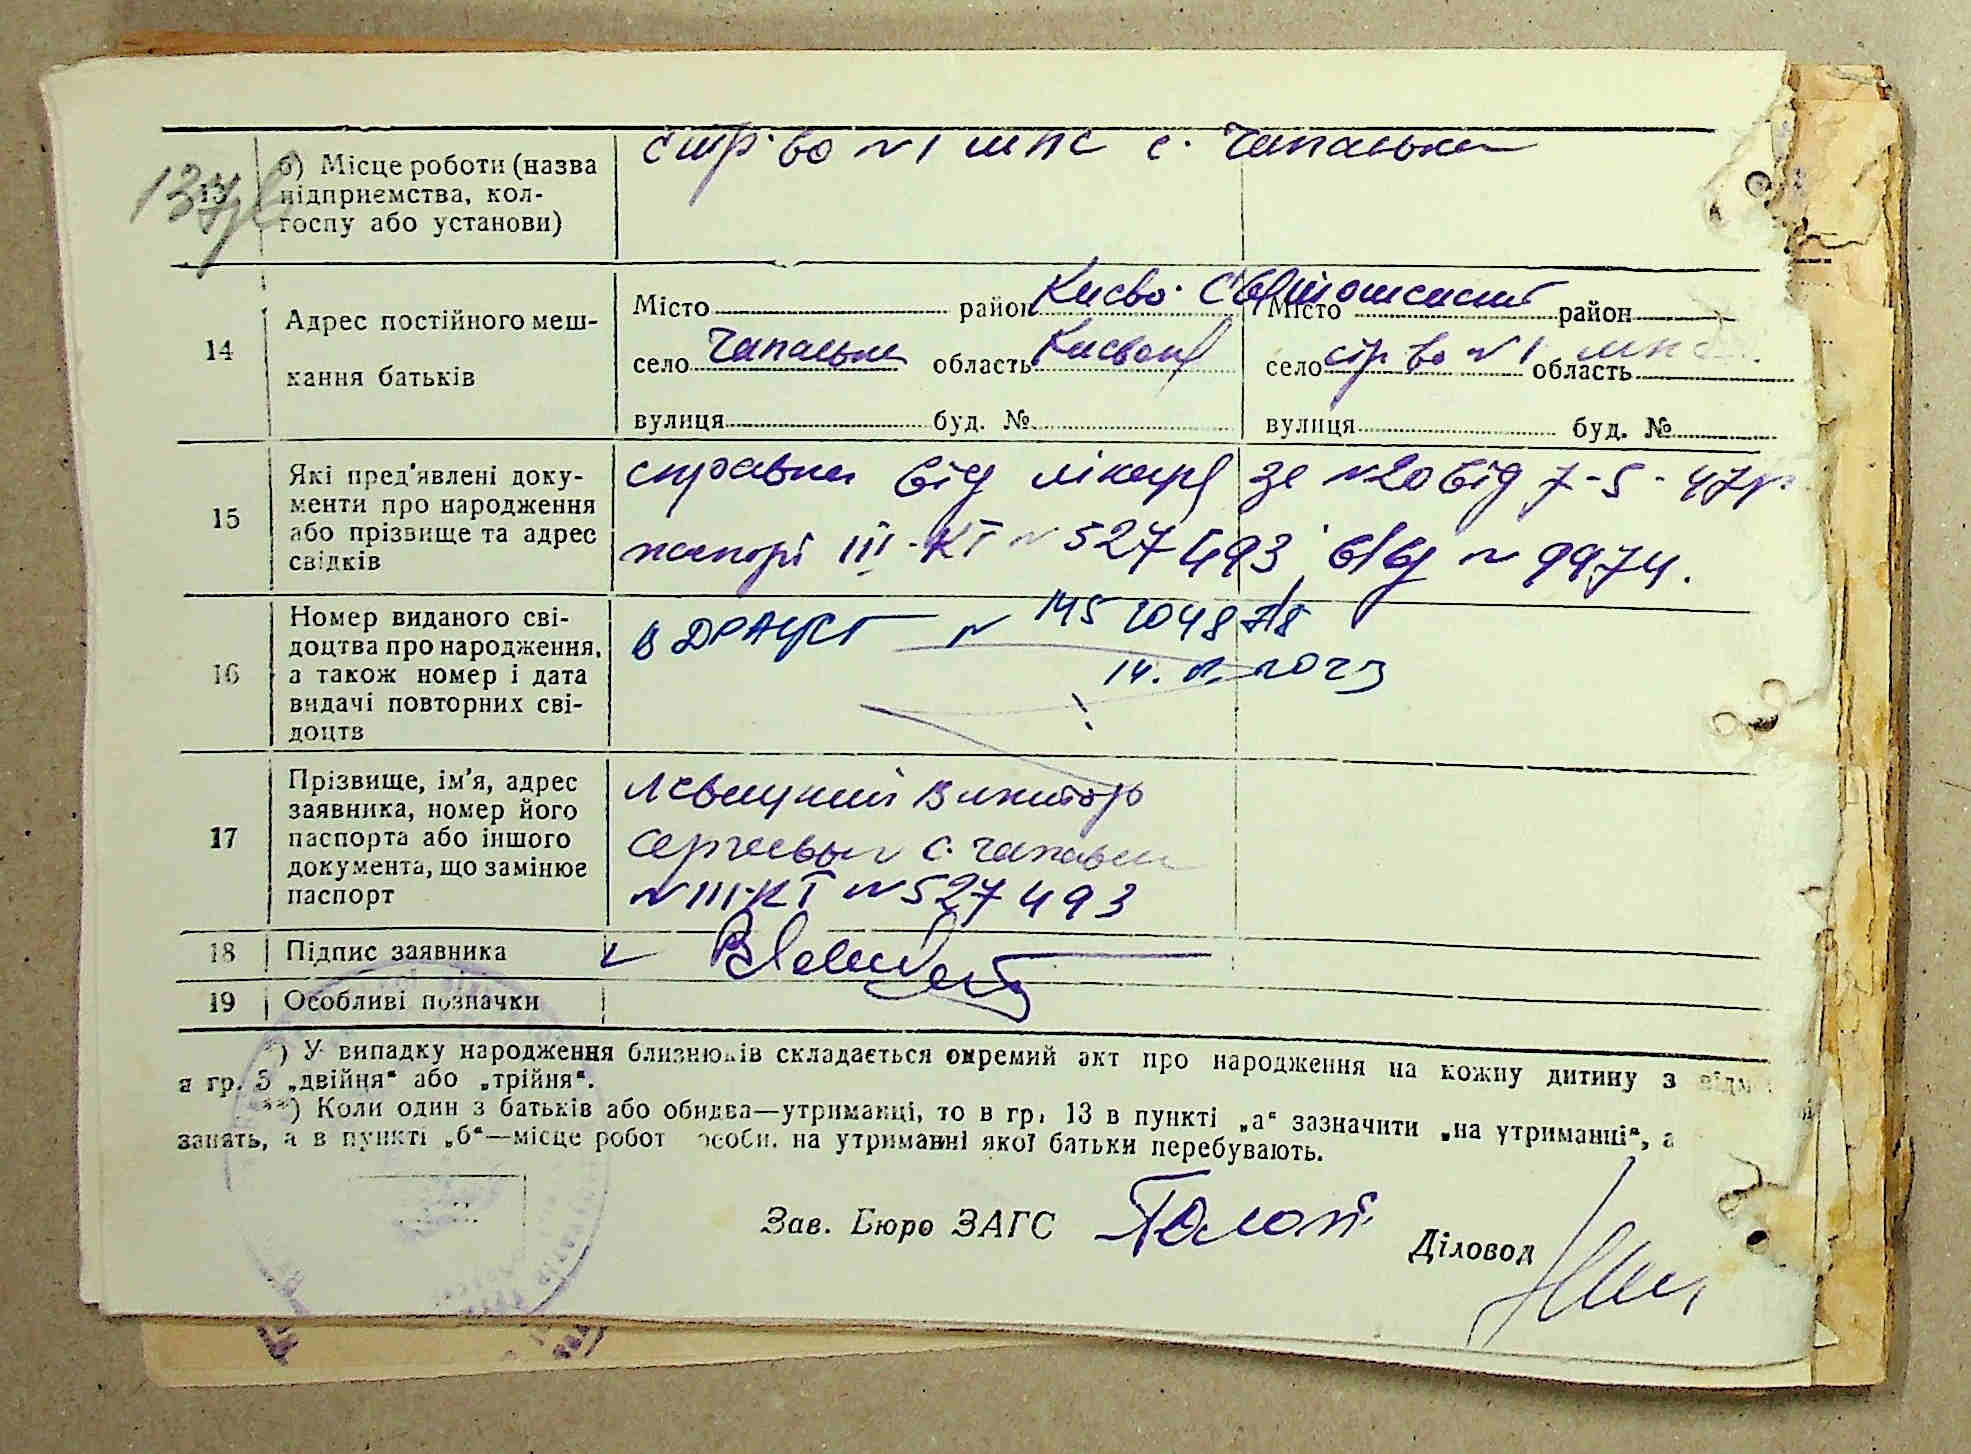 стр-во №1 МПС с. Чапаевка
13
б) Місце роботи (назва
підприємства, кол-
госпу або установи)
14
Адрес постійного меш-
кання батьків
Місто район Києво-Святошинский Місто район
село Чапаевка область Киевская село стр-во №1 МПС область
вулиця буд. № вулиця буд. №
15
Які пред'явлені доку-
менти про народження
або прізвище та адрес
свідків
справка від лікаря за №20 від 7-5-47р
паспорт III-КТ №527493, від № 9974.
16
Номер виданого сві-
доцтва про народження,
а також номер і дата
видачі повторних сві-
доцтв
В ДРАЦСГ №
2023
17
Прізвище, ім'я, адрес
заявника, номер його
паспорта або іншого
документа, що замінює
паспорт
Левицкий Виктор
Сергеевич с. Чапаевка
№ III-КТ №527493
18 Підпис заявника
19 Особливі позначки
*) У випадку народження близнюків складається окремий акт про народження на кожну дитину з
в гр. 5 „двійня“ або „трійня“.
**) Коли один з батьків або обидва—утриманці, то в гр. 13 в пункті „а“ зазначити „на утриманні“, а
занять, а в пункті „б“—місце робот особи, на утриманні якої батьки перебувають.
Зав. Бюро ЗАГС
Діловод